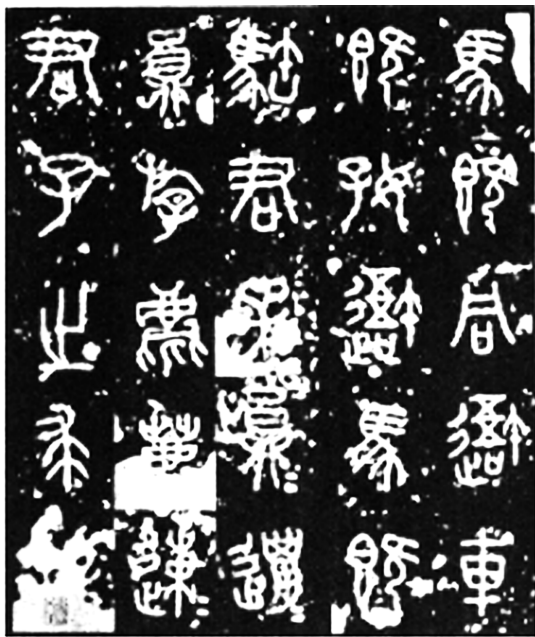 馬既同吾車
既好吾馬既
𩣡君子員邋
員斿麀鹿速
君子之求